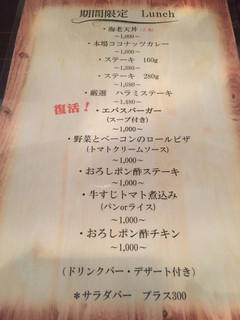 期間限定 Lunch
・海老天丼
~1,000~
・本場ココナッツカレー
~1,000~
・ステーキ 160g
~1,280~
・ステーキ 280g
~1,580~
・厳選 ハラミステーキ
~1,480~
復活!
・エバスバーガー
(スープ付き)
~1,000~
・野菜とベーコンのロールピザ
(トマトクリームソース)
~1,000~
・おろしポン酢ステーキ
~1,000~
・牛すじトマト煮込み
(パンorライス)
~1,000~
・おろしポン酢チキン
~1,000~
(ドリンクバー・デザート付き)
*サラダバー プラス300